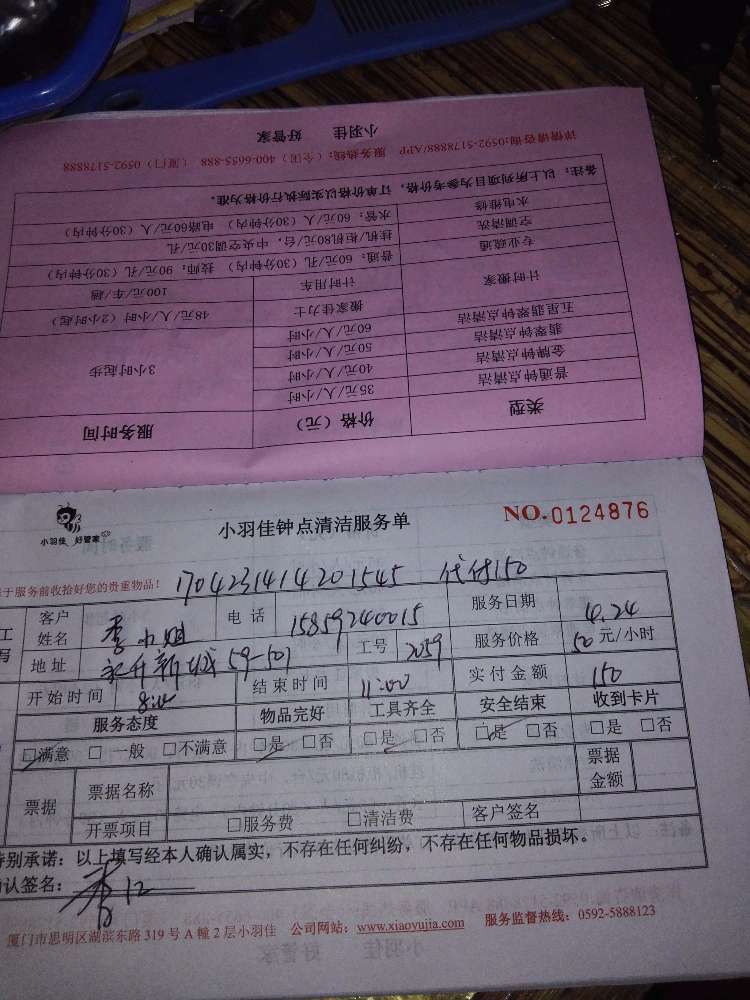 小羽佳 好管家
详情请咨询:0592-5178888/APP 服务热线:400-6655-888（全国） 0592-5178888（厦门）
类型 价格（元） 服务时间
普通钟点清洁 35元/人/小时 3小时起步
金牌钟点清洁 40元/人/小时
翡翠钟点清洁 50元/人/小时
五星翡翠钟点清洁 60元/人/小时
计时搬家 搬家佳力士 48元/人/小时（2小时起）
计时用车 100元/车/趟
专业疏通 普通：60元/孔（30分钟内） 技师：90元/孔（30分钟内）
空调清洗 挂机/柜机80元/台，中央空调30元/孔
水电维修 水管：60元/人（30分钟内） 电路60元/人（30分钟内）
备注：以上所列项目为参考价格，订单价格以实际执行价格为准。
小羽佳 好管家
小羽佳钟点清洁服务单
NO.0124876
于服务前收拾好您的贵重物品！ 1704231414201545 代付150
客户姓名 李小姐 电话 15859240015 服务日期 4.24
地址 永升新城59-501 工号 2059 服务价格 50元/小时
开始时间 8:00 结束时间 11:00 实付金额 150
服务态度 物品完好 工具齐全 安全结束 收到卡片
☑满意 □一般 □不满意 ☑是 □否 ☑是 □否 ☑是 □否 □是 □否
票据 票据名称 票据金额
开票项目 □服务费 □清洁费 客户签名
特别承诺：以上填写经本人确认属实，不存在任何纠纷，不存在任何物品损坏。
确认签名：
厦门市思明区湖滨东路319号A幢2层小羽佳 公司网站：www.xiaoyujia.com 服务监督热线：0592-5888123